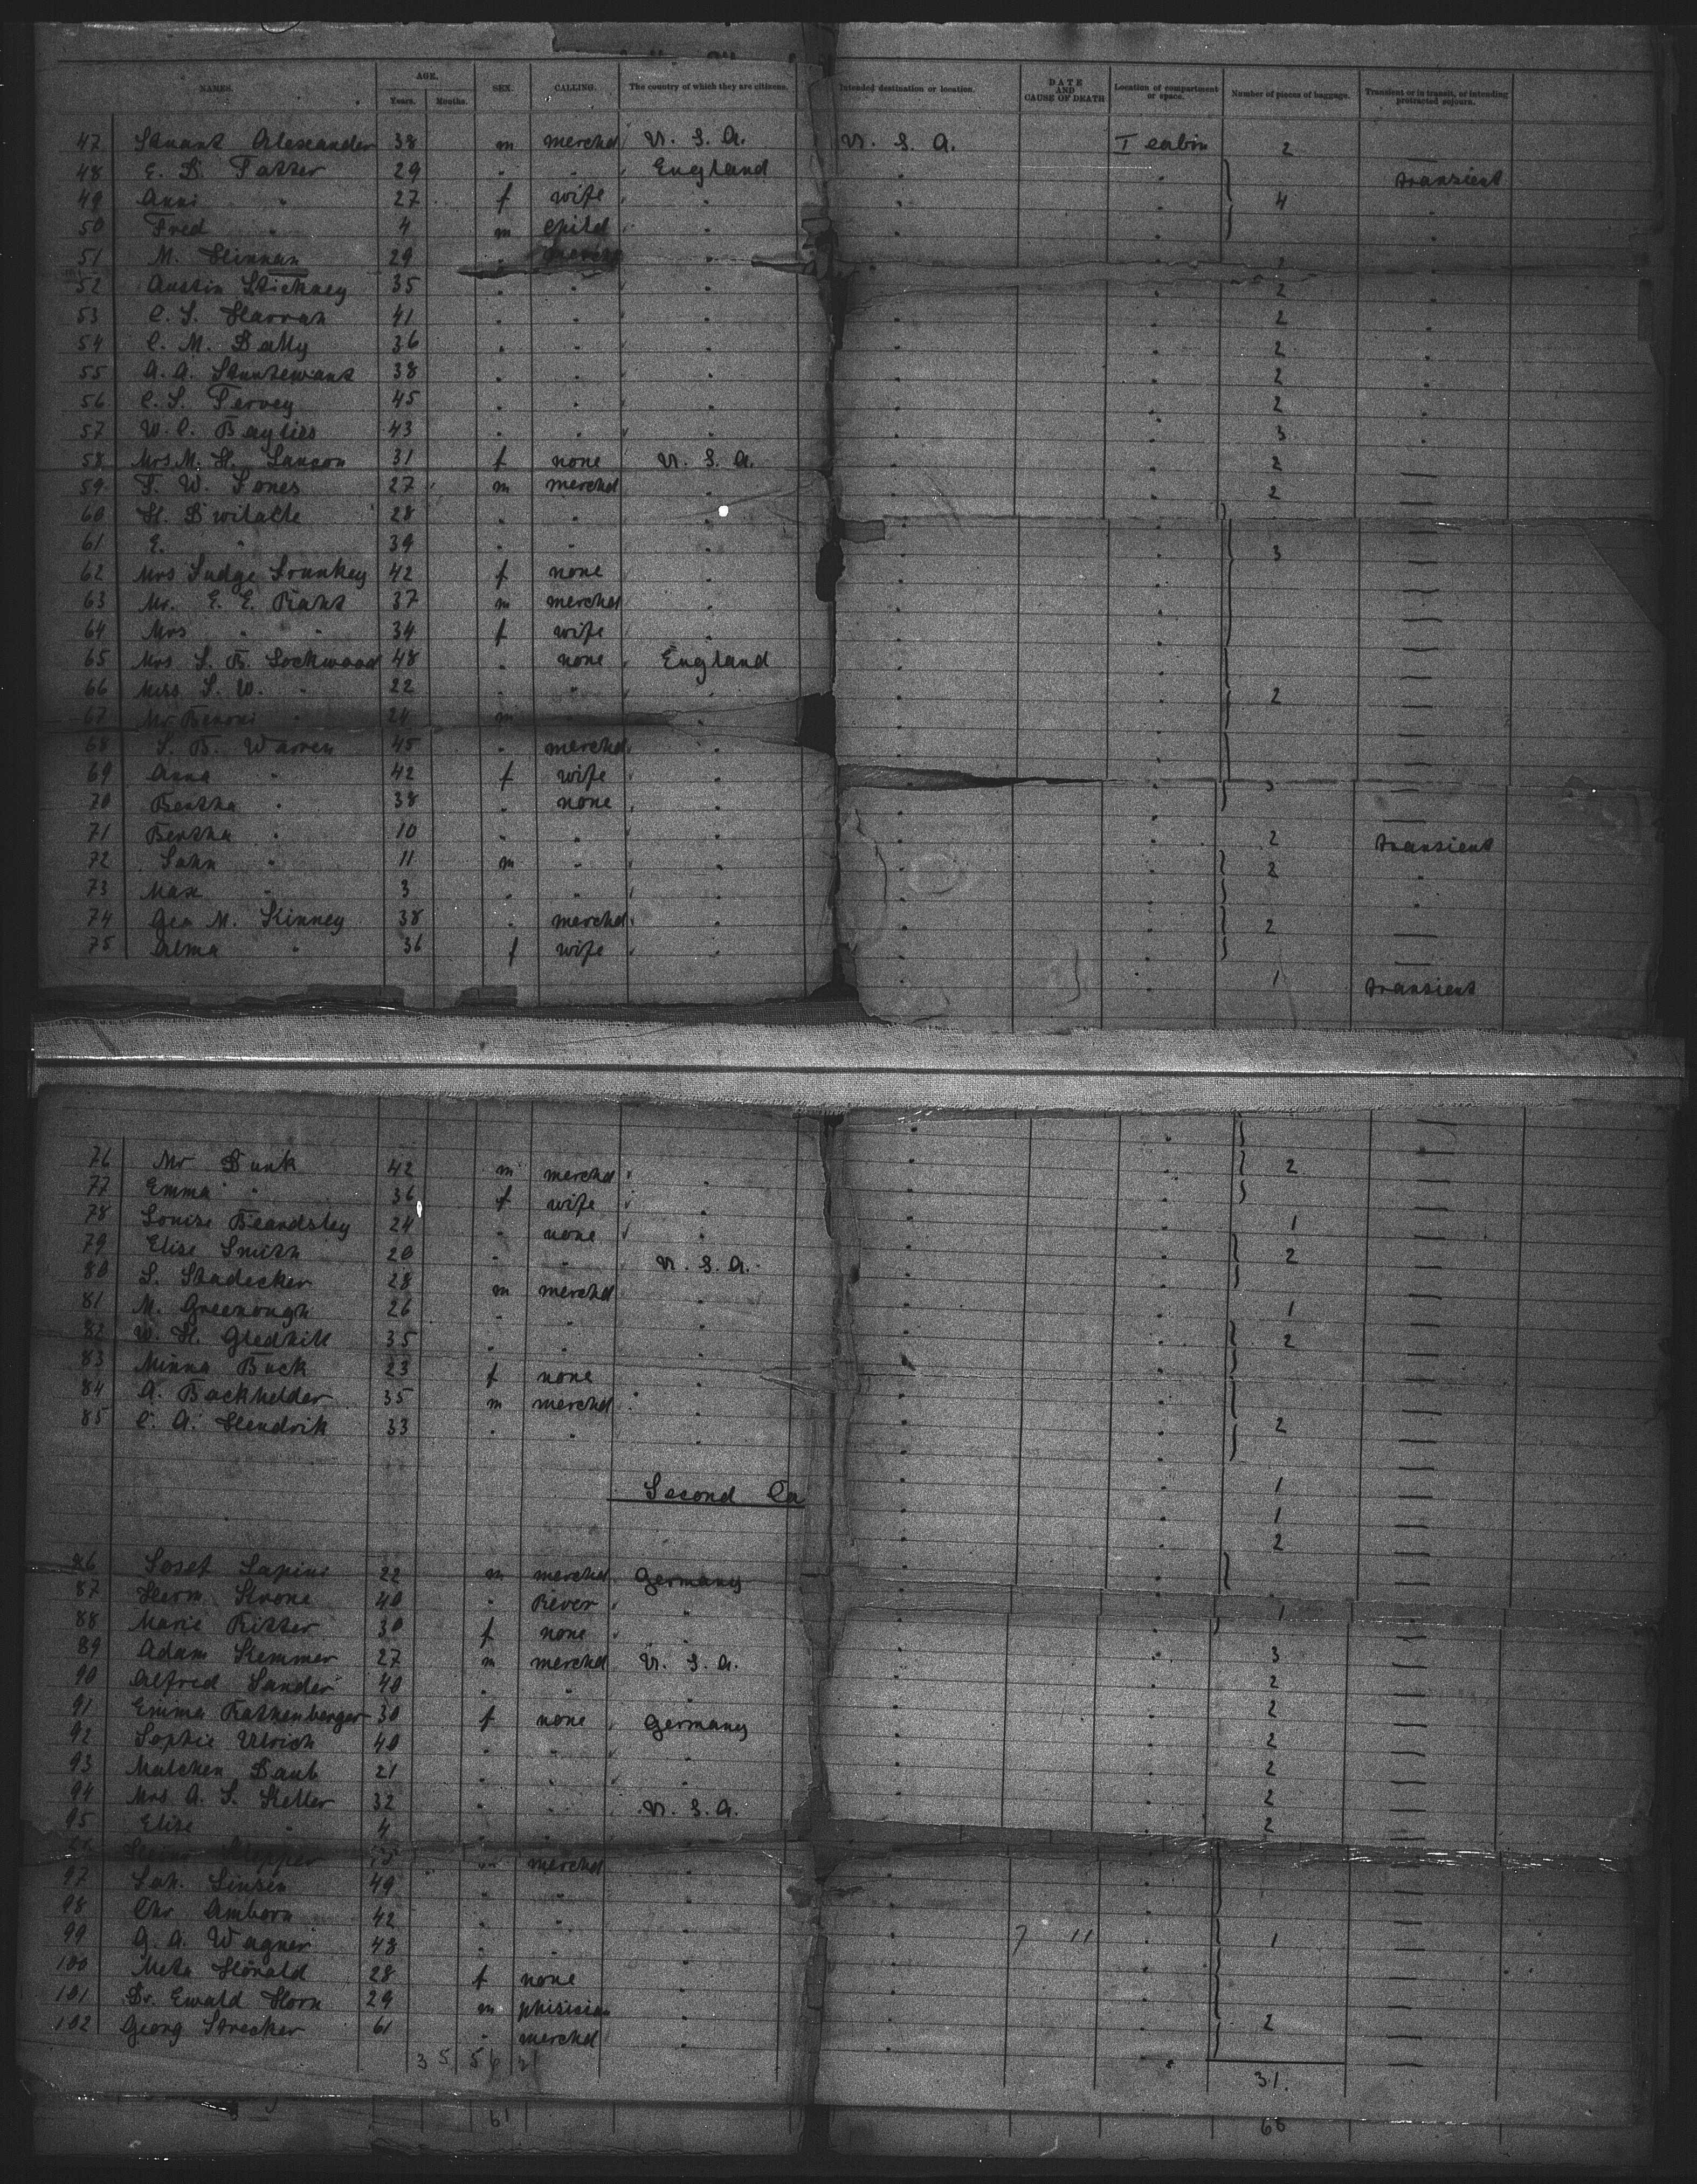 NAMES. AGE. Years. Months. SEX. CALLING. The country of which they are citizens. Intended destination or location. DATE AND CAUSE OF DEATH Location of compartment or space. Number of pieces of baggage. Transient or in transit, or intending protracted sojourn.
47 Stuart Alexander 38 m merchd U. S. A. U. S. A. I cabin 2 —
48 E. D. Fatter 29 " " England " " transient
49 Anni " 27 f wife " " " 4 "
50 Fred " 4 m child " " " "
51 M. Hinman 29 " " " " "
52 Austin Stickney 35 " " " " " 2 "
53 C. S. Harrah 41 " " " " " 2 "
54 C. M. Dally 36 " " " " " 2 "
55 A. A. Sturtewant 38 " " " " " 2 "
56 C. S. Pervey 45 " " " " " 2 "
57 W. C. Baylies 43 " " " " " 3 "
58 Mrs M. H. Lauson 31 f none U. S. A. " " 2 —
59 F. W. Jones 27 m merchd " " " 2 —
60 H. Dwilatte 28 " " " " " —
61 E. " 39 " " " " " 3 —
62 Mrs Judge Trunkey 42 f none " " " —
63 Mr. E. E. Riant 37 m merchd " " " —
64 Mrs " " 34 f wife " " " —
65 Mrs L. B. Lockwood 48 " none England " " —
66 Miss L. W. " 22 " " " " " 2 —
67 Mr Benoni " 24 m " " " " —
68 L. B. Warren 45 " merchd " " " —
69 Anna " 42 f wife " " " —
70 Bertha " 38 " none " " " —
71 Bertha " 10 " " " " " 2 transient
72 John " 11 m " " " " 2 "
73 Max " 3 " " " " " "
74 Geo M. Kinney 38 " merchd " " " 2 —
75 Alma " 36 f wife " " " —
1 transient
76 Mr Dunk 42 m merchd " " " 2 —
77 Emma " 36 f wife " " " —
78 Louise Beardsley 24 " none " " " 1 —
79 Elise Smith 20 " " U. S. A. " " 2 —
80 S. Stadecker 28 m merchd " " " —
81 M. Greenough 26 " " " " " 1 —
82 W. H. Gledhill 35 " " " " " 2 —
83 Minna Buck 23 f none " " " —
84 A. Backhelder 35 m merchd " " " —
85 C. A. Hendrik 33 " " " " " 2 —
Second Ca
1 —
1 —
2 —
86 Josef Lapius 22 m merchd Germany " " —
87 Herm Krone 40 " Riever " " " 1 —
88 Marie Ritter 30 f none " " " —
89 Adam Kemmer 27 m merchd U. S. A. " " 3 —
90 Alfred Sander 40 " " " " " 2 —
91 Emma Rathenberger 30 f none Germany " " 2 —
92 Sophie Ulrich 40 " " " " " 2 —
93 Malchen Daub 21 " " " " " 2 —
94 Mrs A. S. Keller 32 " " U. S. A. " " 2 —
95 Elise " 4 " " " " " 2 —
merchd
97 Joh. Linsen 49 " " " " " —
98 Chr Amborn 42 " " " " " —
99 G. A. Wagner 48 " " " " 7 11 " 1 —
100 Meta Honald 28 f none " " " —
101 Dr. Ewald Horn 29 m phisician " " " —
102 Georg Strecker 61 " merchd " " " 2 —
35 56 21
31.
61 66